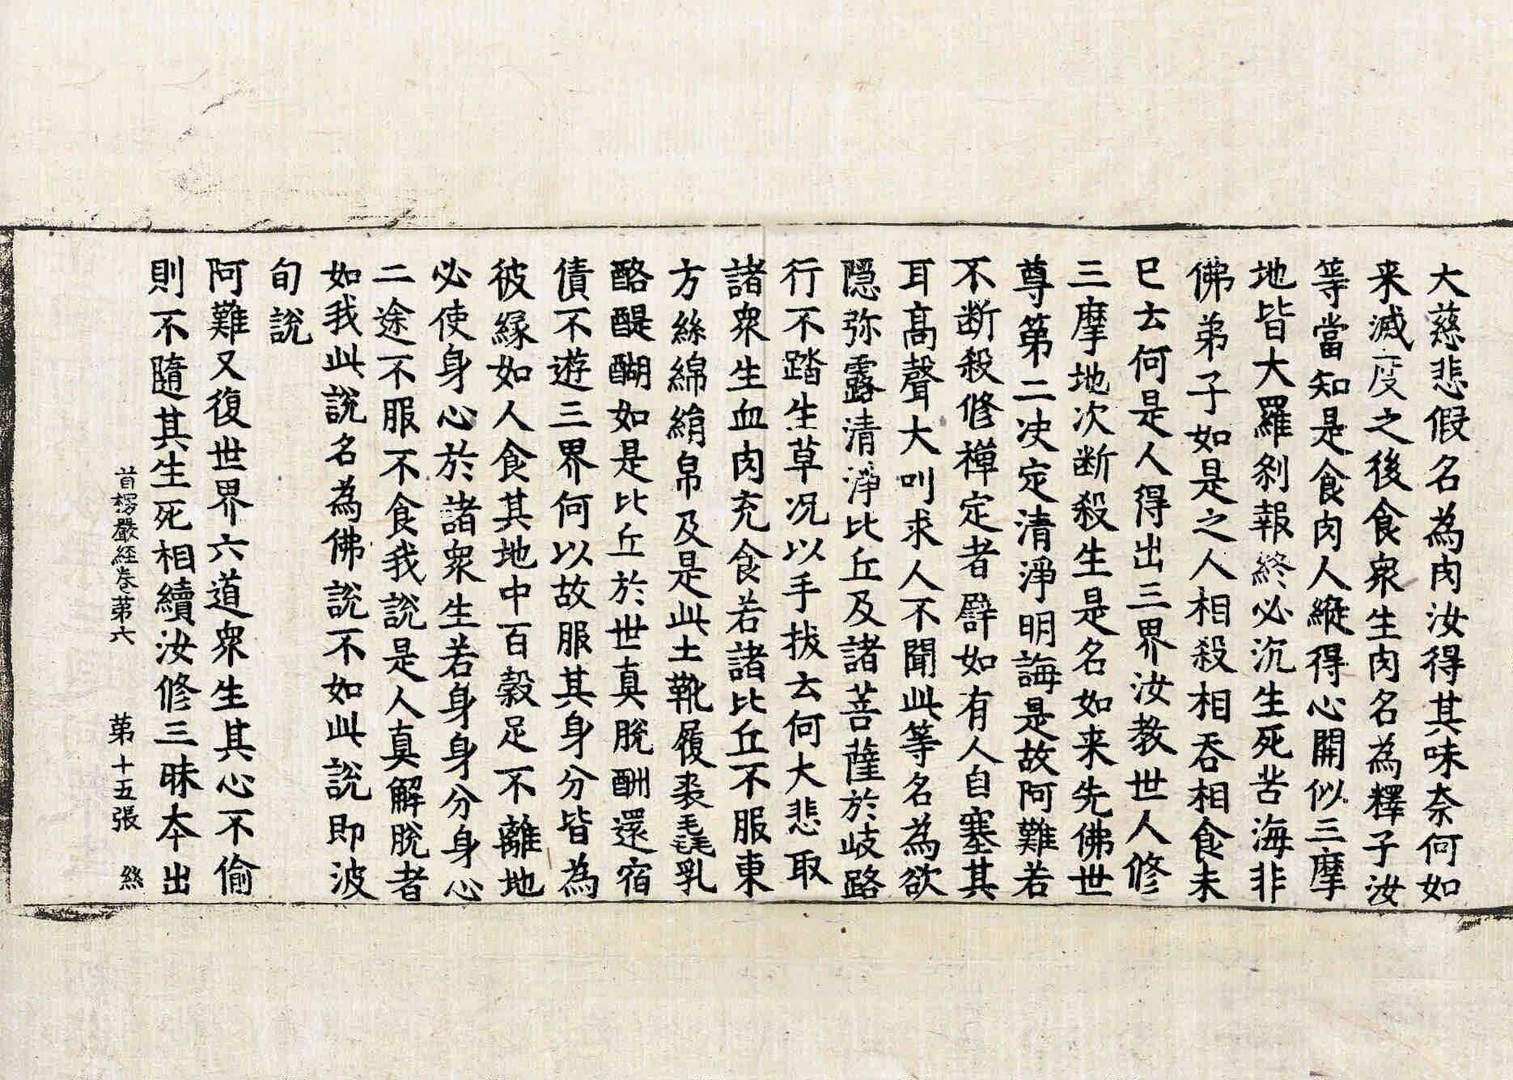 大慈悲假名為肉汝得其味柰何如
来滅度之後食衆生肉名為釋子汝
等當知是食肉人縱得心開似三摩
地皆大羅剎報終必沉生死苦海非
佛弟子如是之人相殺相吞相食未
已去何是人得出三界汝教世人修
三摩地次斷殺生是名如来先佛世
尊第二决定清淨明誨是故阿難若
不断殺修禪定者辟如有人自塞其
耳高聲大叫求人不聞此等名為欲
隱弥露清淨比丘及諸菩薩於岐路
行不踏生草况以手拔去何大悲取
諸衆生血肉充食若諸比丘不服東
方絲綿絹帛及是此土靴履裘毳乳
酪醍醐如是比丘於世真脫酬還宿
債不遊三界何以故服其身分皆為
彼緣如人食其地中百穀足不離地
必使身心於諸衆生若身身分身心
二途不服不食我說是人真解脫者
如我此說名為佛說不如此說即波
旬說
阿難又復世界六道衆生其心不偷
則不隨其生死相續汝修三昧夲出
首楞嚴經卷第六 第十五張